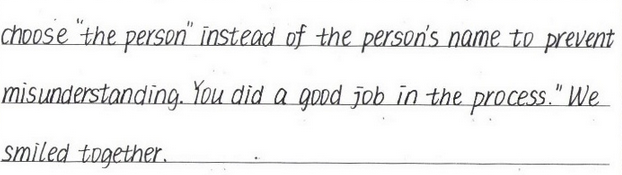 choose "the person" instead of the person's name to prevent
misunderstanding. You did a good job in the process." We
smiled together.